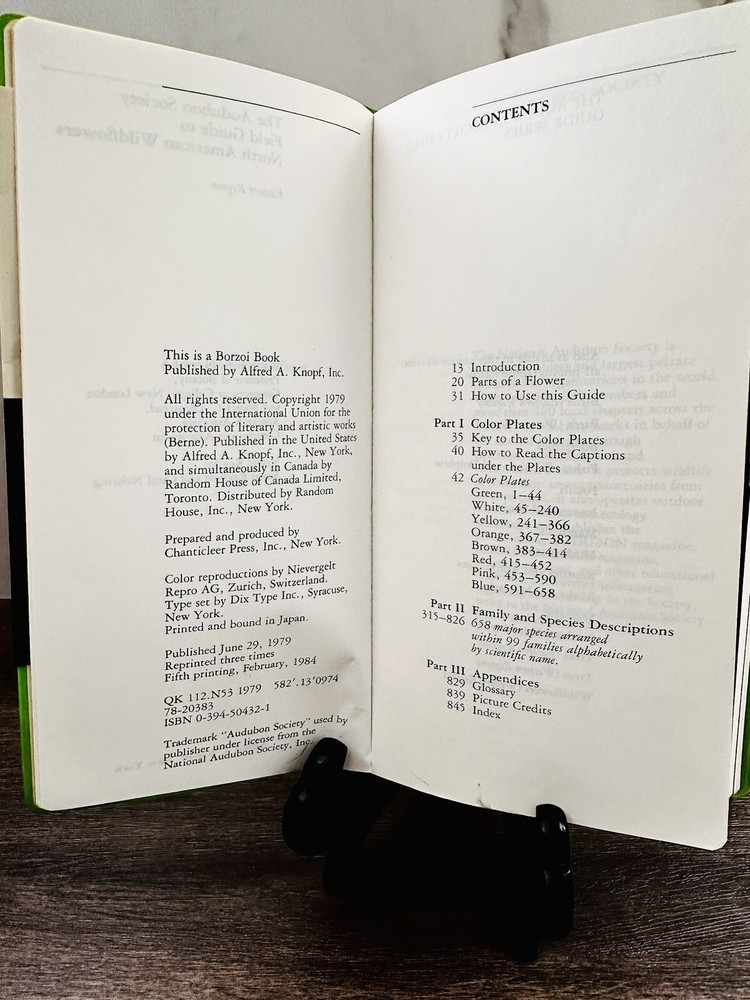 This is a Borzoi Book
Published by Alfred A. Knopf, Inc.
All rights reserved. Copyright 1979
under the International Union for the
protection of literary and artistic works
(Berne). Published in the United States
by Alfred A. Knopf, Inc., New York,
and simultaneously in Canada by
Random House of Canada Limited,
Toronto. Distributed by Random
House, Inc., New York.
Prepared and produced by
Chanticleer Press, Inc., New York.
Color reproductions by Nievergelt
Repro AG, Zurich, Switzerland.
Type set by Dix Type Inc., Syracuse,
New York.
Printed and bound in Japan.
Published June 29, 1979
Reprinted three times
Fifth printing, February, 1984
QK 112.N53 1979 582'.13'0974
78-20383
ISBN 0-394-50432-1
Trademark "Audubon Society" used by
publisher under license from the
National Audubon Society, Inc.
CONTENTS
13 Introduction
20 Parts of a Flower
31 How to Use this Guide
Part I Color Plates
35 Key to the Color Plates
40 How to Read the Captions
under the Plates
42 Color Plates
Green, 1–44
White, 45–240
Yellow, 241–366
Orange, 367–382
Brown, 383–414
Red, 415–452
Pink, 453–590
Blue, 591–658
Part II Family and Species Descriptions
315–826 658 major species arranged
within 99 families alphabetically
by scientific name.
Part III Appendices
829 Glossary
839 Picture Credits
845 Index